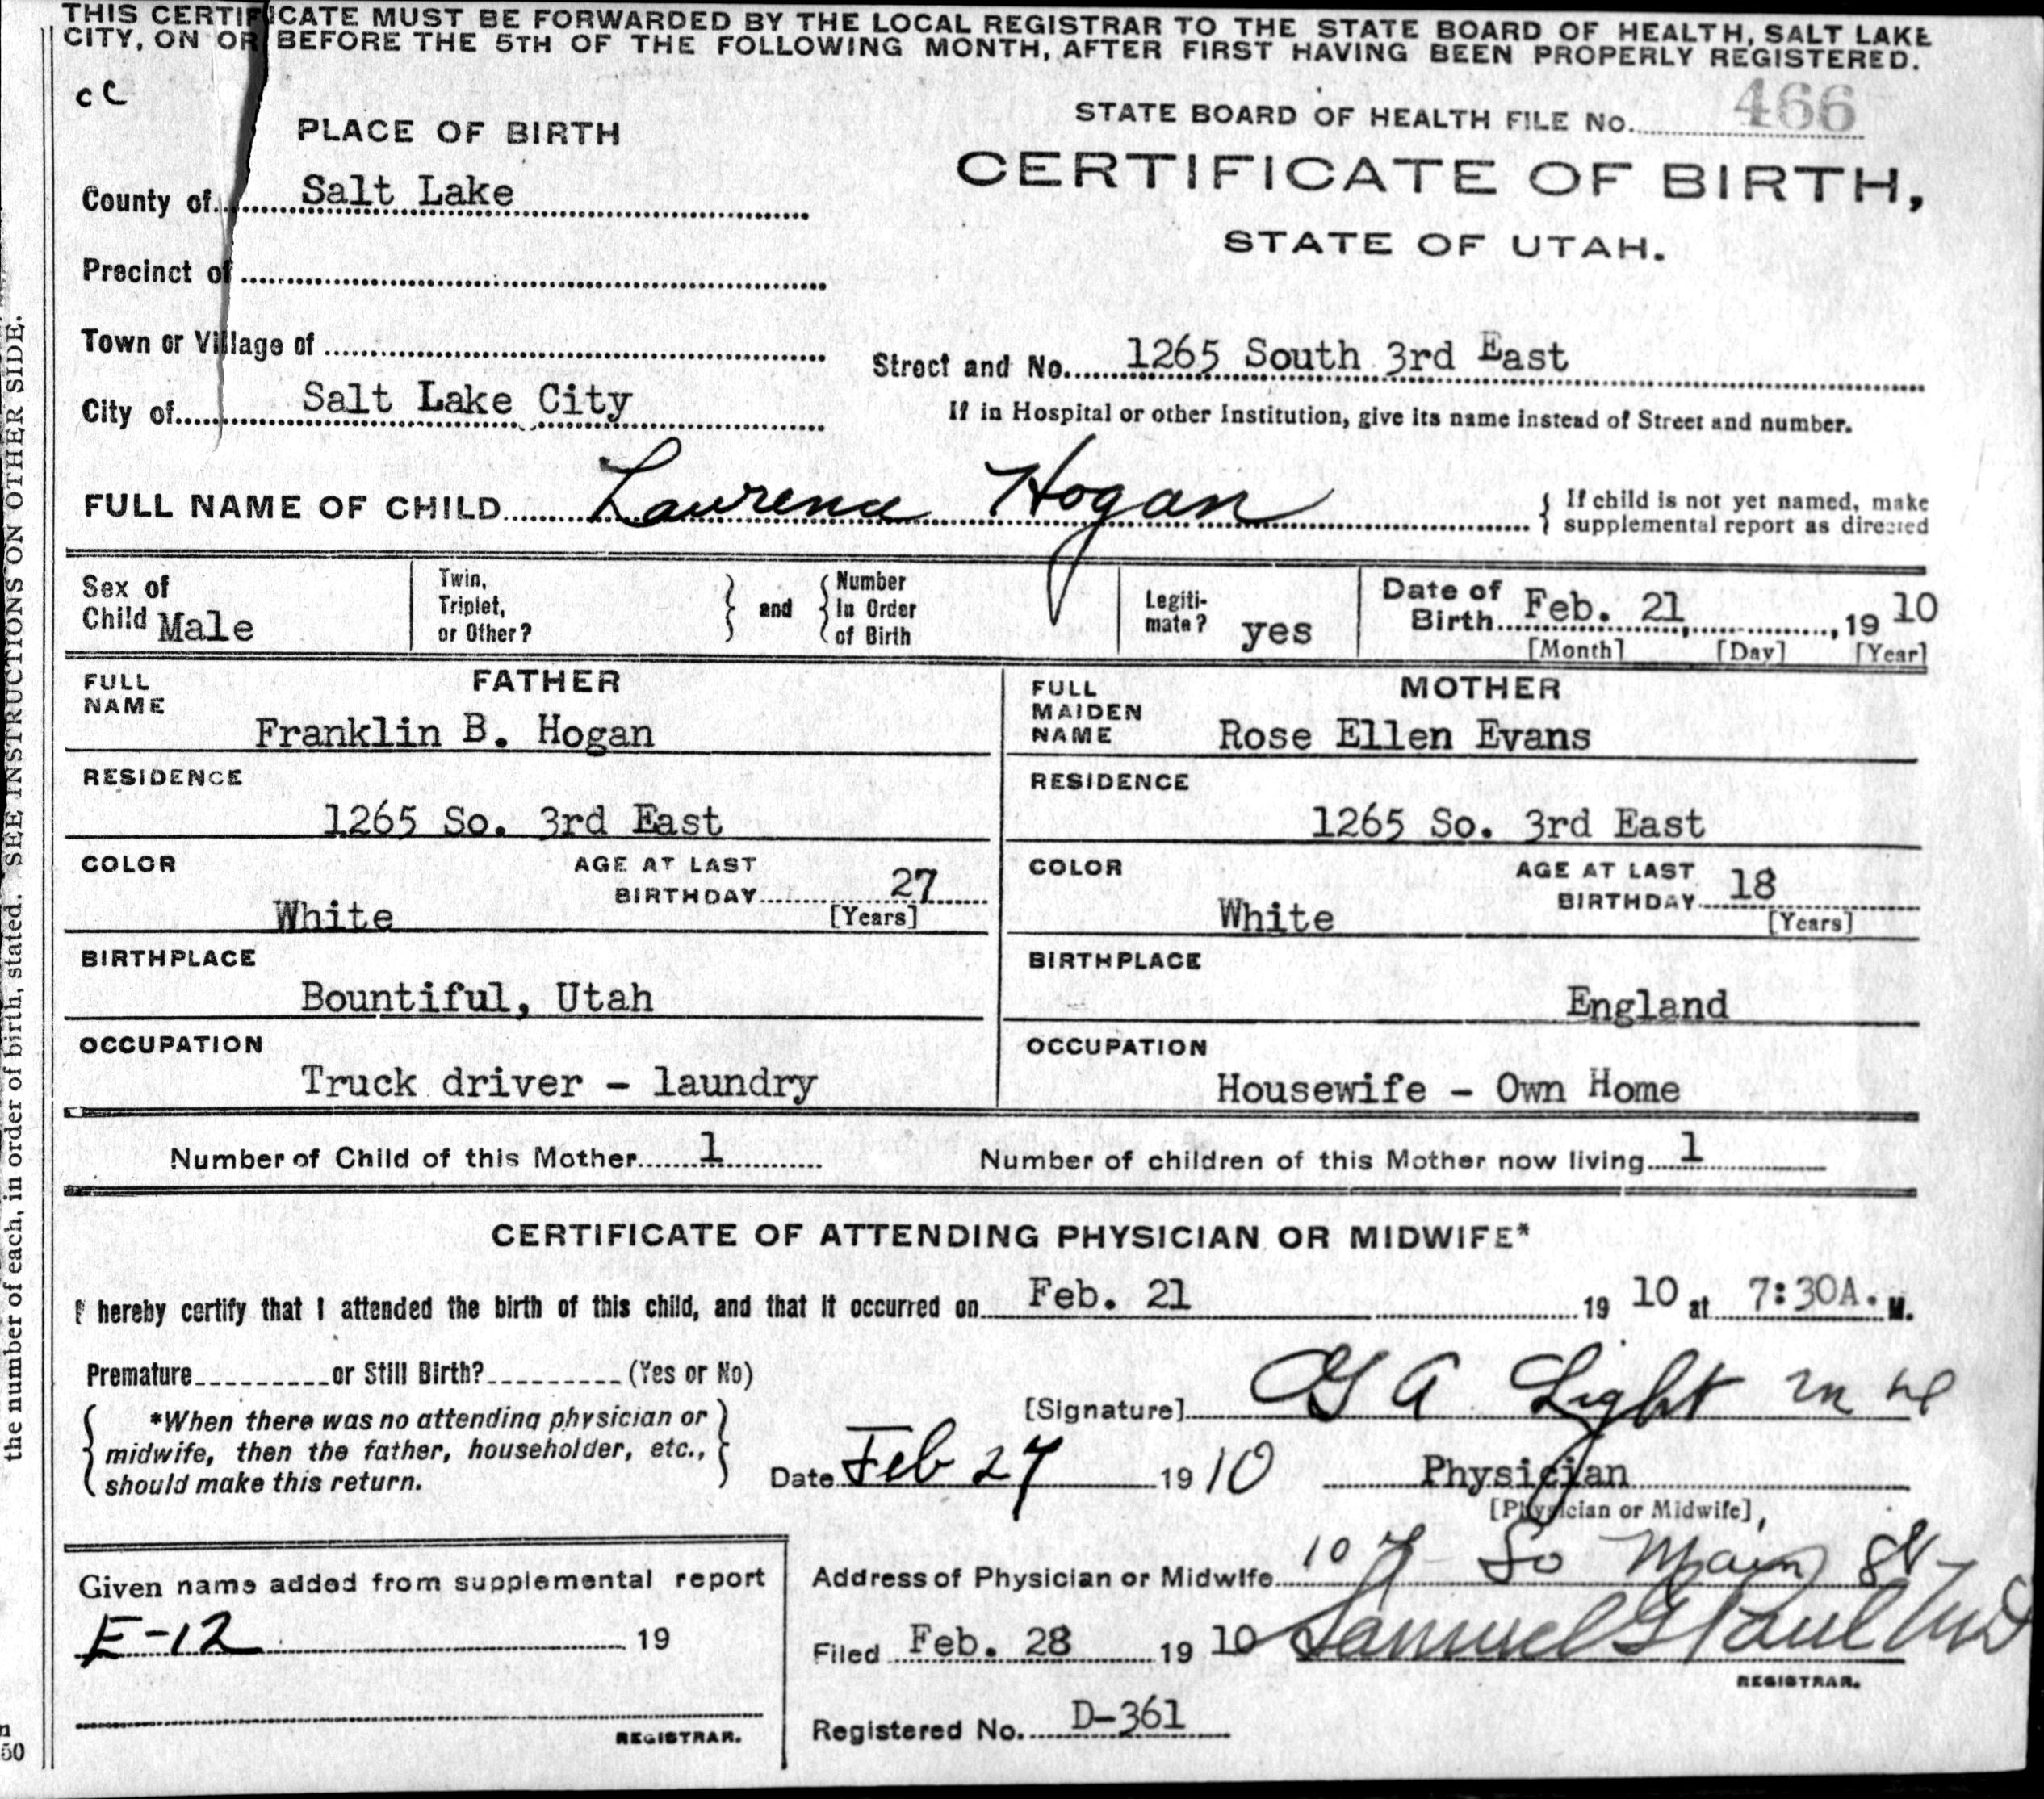 THIS CERTIFICATE MUST BE FORWARDED BY THE LOCAL REGISTRAR TO THE STATE BOARD OF HEALTH, SALT LAKE
CITY, ON OR BEFORE THE 5TH OF THE FOLLOWING MONTH, AFTER FIRST HAVING BEEN PROPERLY REGISTERED.
cc
STATE BOARD OF HEALTH FILE No. 466
PLACE OF BIRTH
CERTIFICATE OF BIRTH,
STATE OF UTAH.
County of Salt Lake
Precinct of
Town or Village of
Street and No. 1265 South 3rd East
City of Salt Lake City
If in Hospital or other Institution, give its name instead of Street and number.
FULL NAME OF CHILD Lawrence Hogan
{ If child is not yet named, make
supplemental report as directed
Sex of
Child Male
Twin,
Triplet,
or Other?
} and {
Number
In Order
of Birth
Legiti-
mate? yes
Date of
Birth Feb. 21, , 19 10
[Month] [Day] [Year]
FATHER
FULL
NAME
Franklin B. Hogan
RESIDENCE
1265 So. 3rd East
COLOR
White
AGE AT LAST
BIRTHDAY 27
[Years]
BIRTHPLACE
Bountiful, Utah
OCCUPATION
Truck driver - laundry
MOTHER
FULL
MAIDEN
NAME
Rose Ellen Evans
RESIDENCE
1265 So. 3rd East
COLOR
White
AGE AT LAST
BIRTHDAY 18
[Years]
BIRTHPLACE
England
OCCUPATION
Housewife - Own Home
Number of Child of this Mother 1
Number of children of this Mother now living 1
CERTIFICATE OF ATTENDING PHYSICIAN OR MIDWIFE*
I hereby certify that I attended the birth of this child, and that it occurred on Feb. 21 19 10 at 7:30A. M.
Premature or Still Birth? (Yes or No)
*When there was no attending physician or
midwife, then the father, householder, etc.,
should make this return.
[Signature] G A Light M D
Date Feb 27 19 10
Physician
[Physician or Midwife],
Address of Physician or Midwife 107 So Main St
Filed Feb. 28 19 10 Samuel G Paul MD
REGISTRAR.
Registered No. D-361
Given name added from supplemental report
E-12 19
REGISTRAR.
the number of each, in order of birth, stated. SEE INSTRUCTIONS ON OTHER SIDE.
50